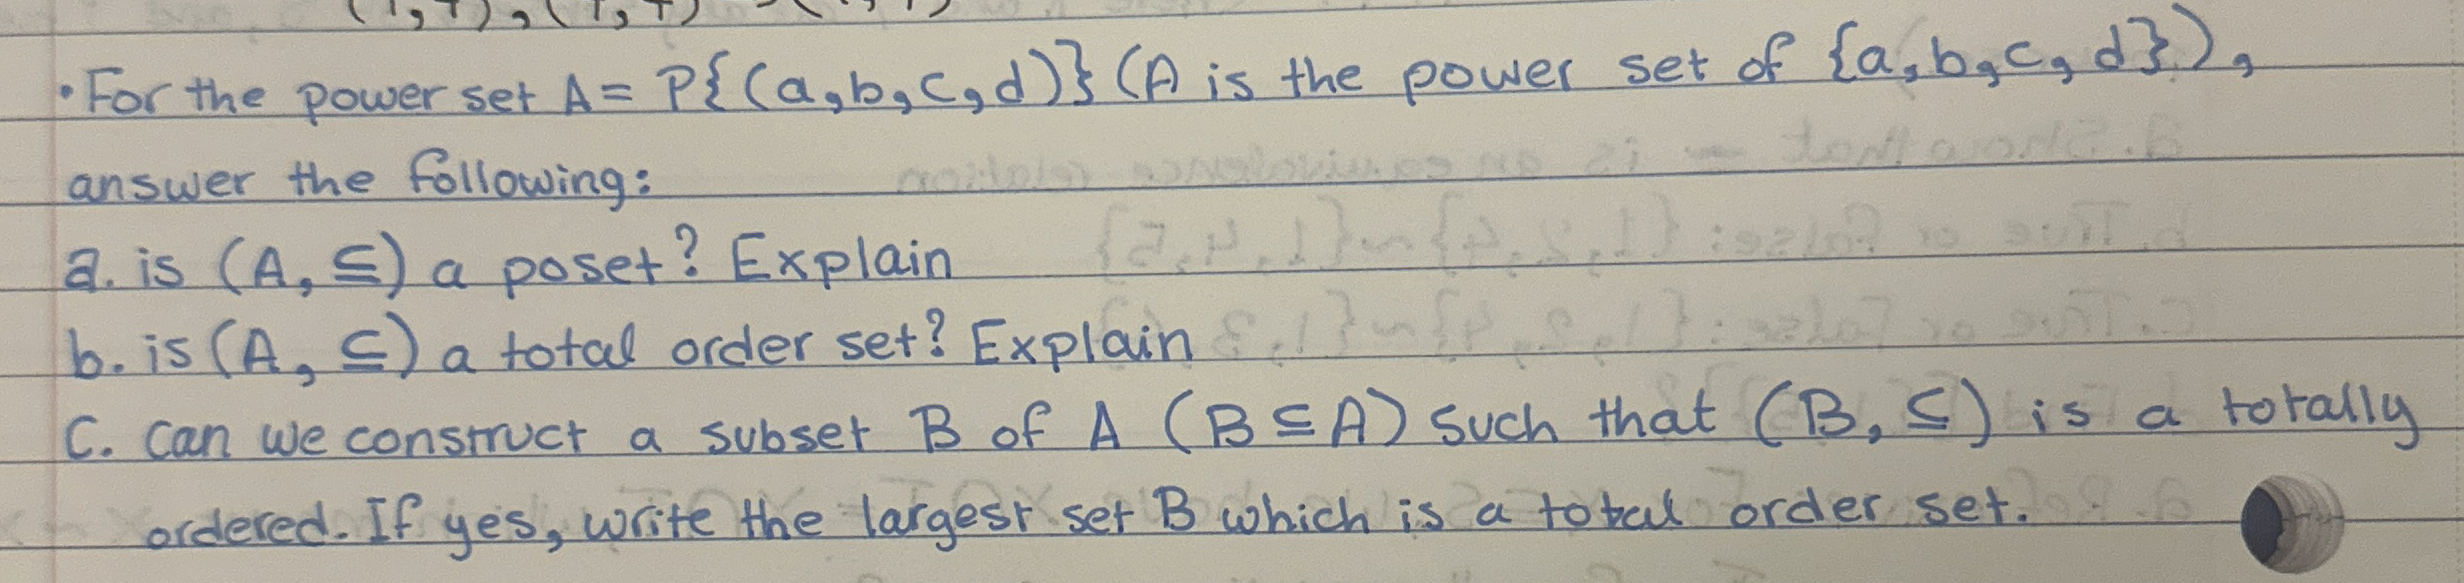 • For the power set A = P{(a,b,c,d)} (A is the power set of {a,b,c,d}),
answer the following:
a. is (A, ⊆) a poset? Explain
b. is (A, ⊆) a total order set? Explain
C. can we construct a subset B of A (B ⊆ A) such that (B, ⊆) is a totally
ordered. If yes, write the largest set B which is a total order set.